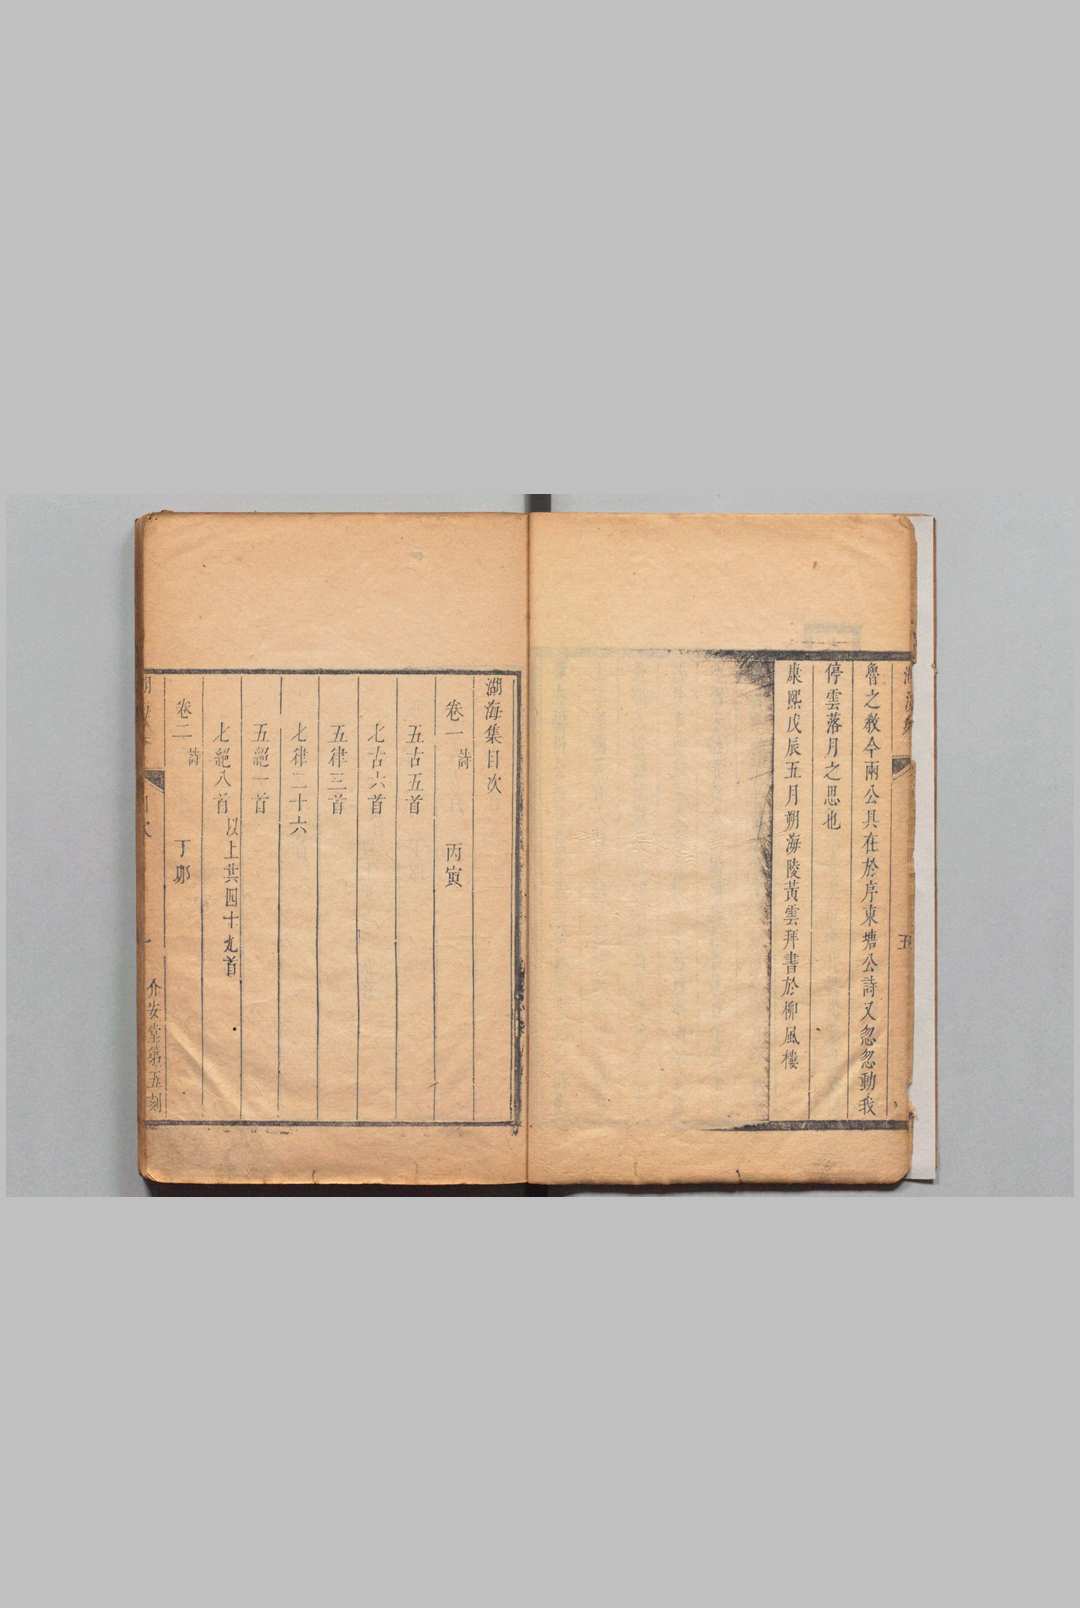 魯之教今兩公具在於序東塘公詩又忽忽動我
停雲落月之思也
康熙戊辰五月朔海陵黃雲拜書於柳風樓
五
湖海集目次
卷一 詩 丙寅
五古五首
七古六首
五律三首
七律二十六
五絕一首
七絕八首 以上共四十九首
卷二 詩 丁卯
介安堂第五刻